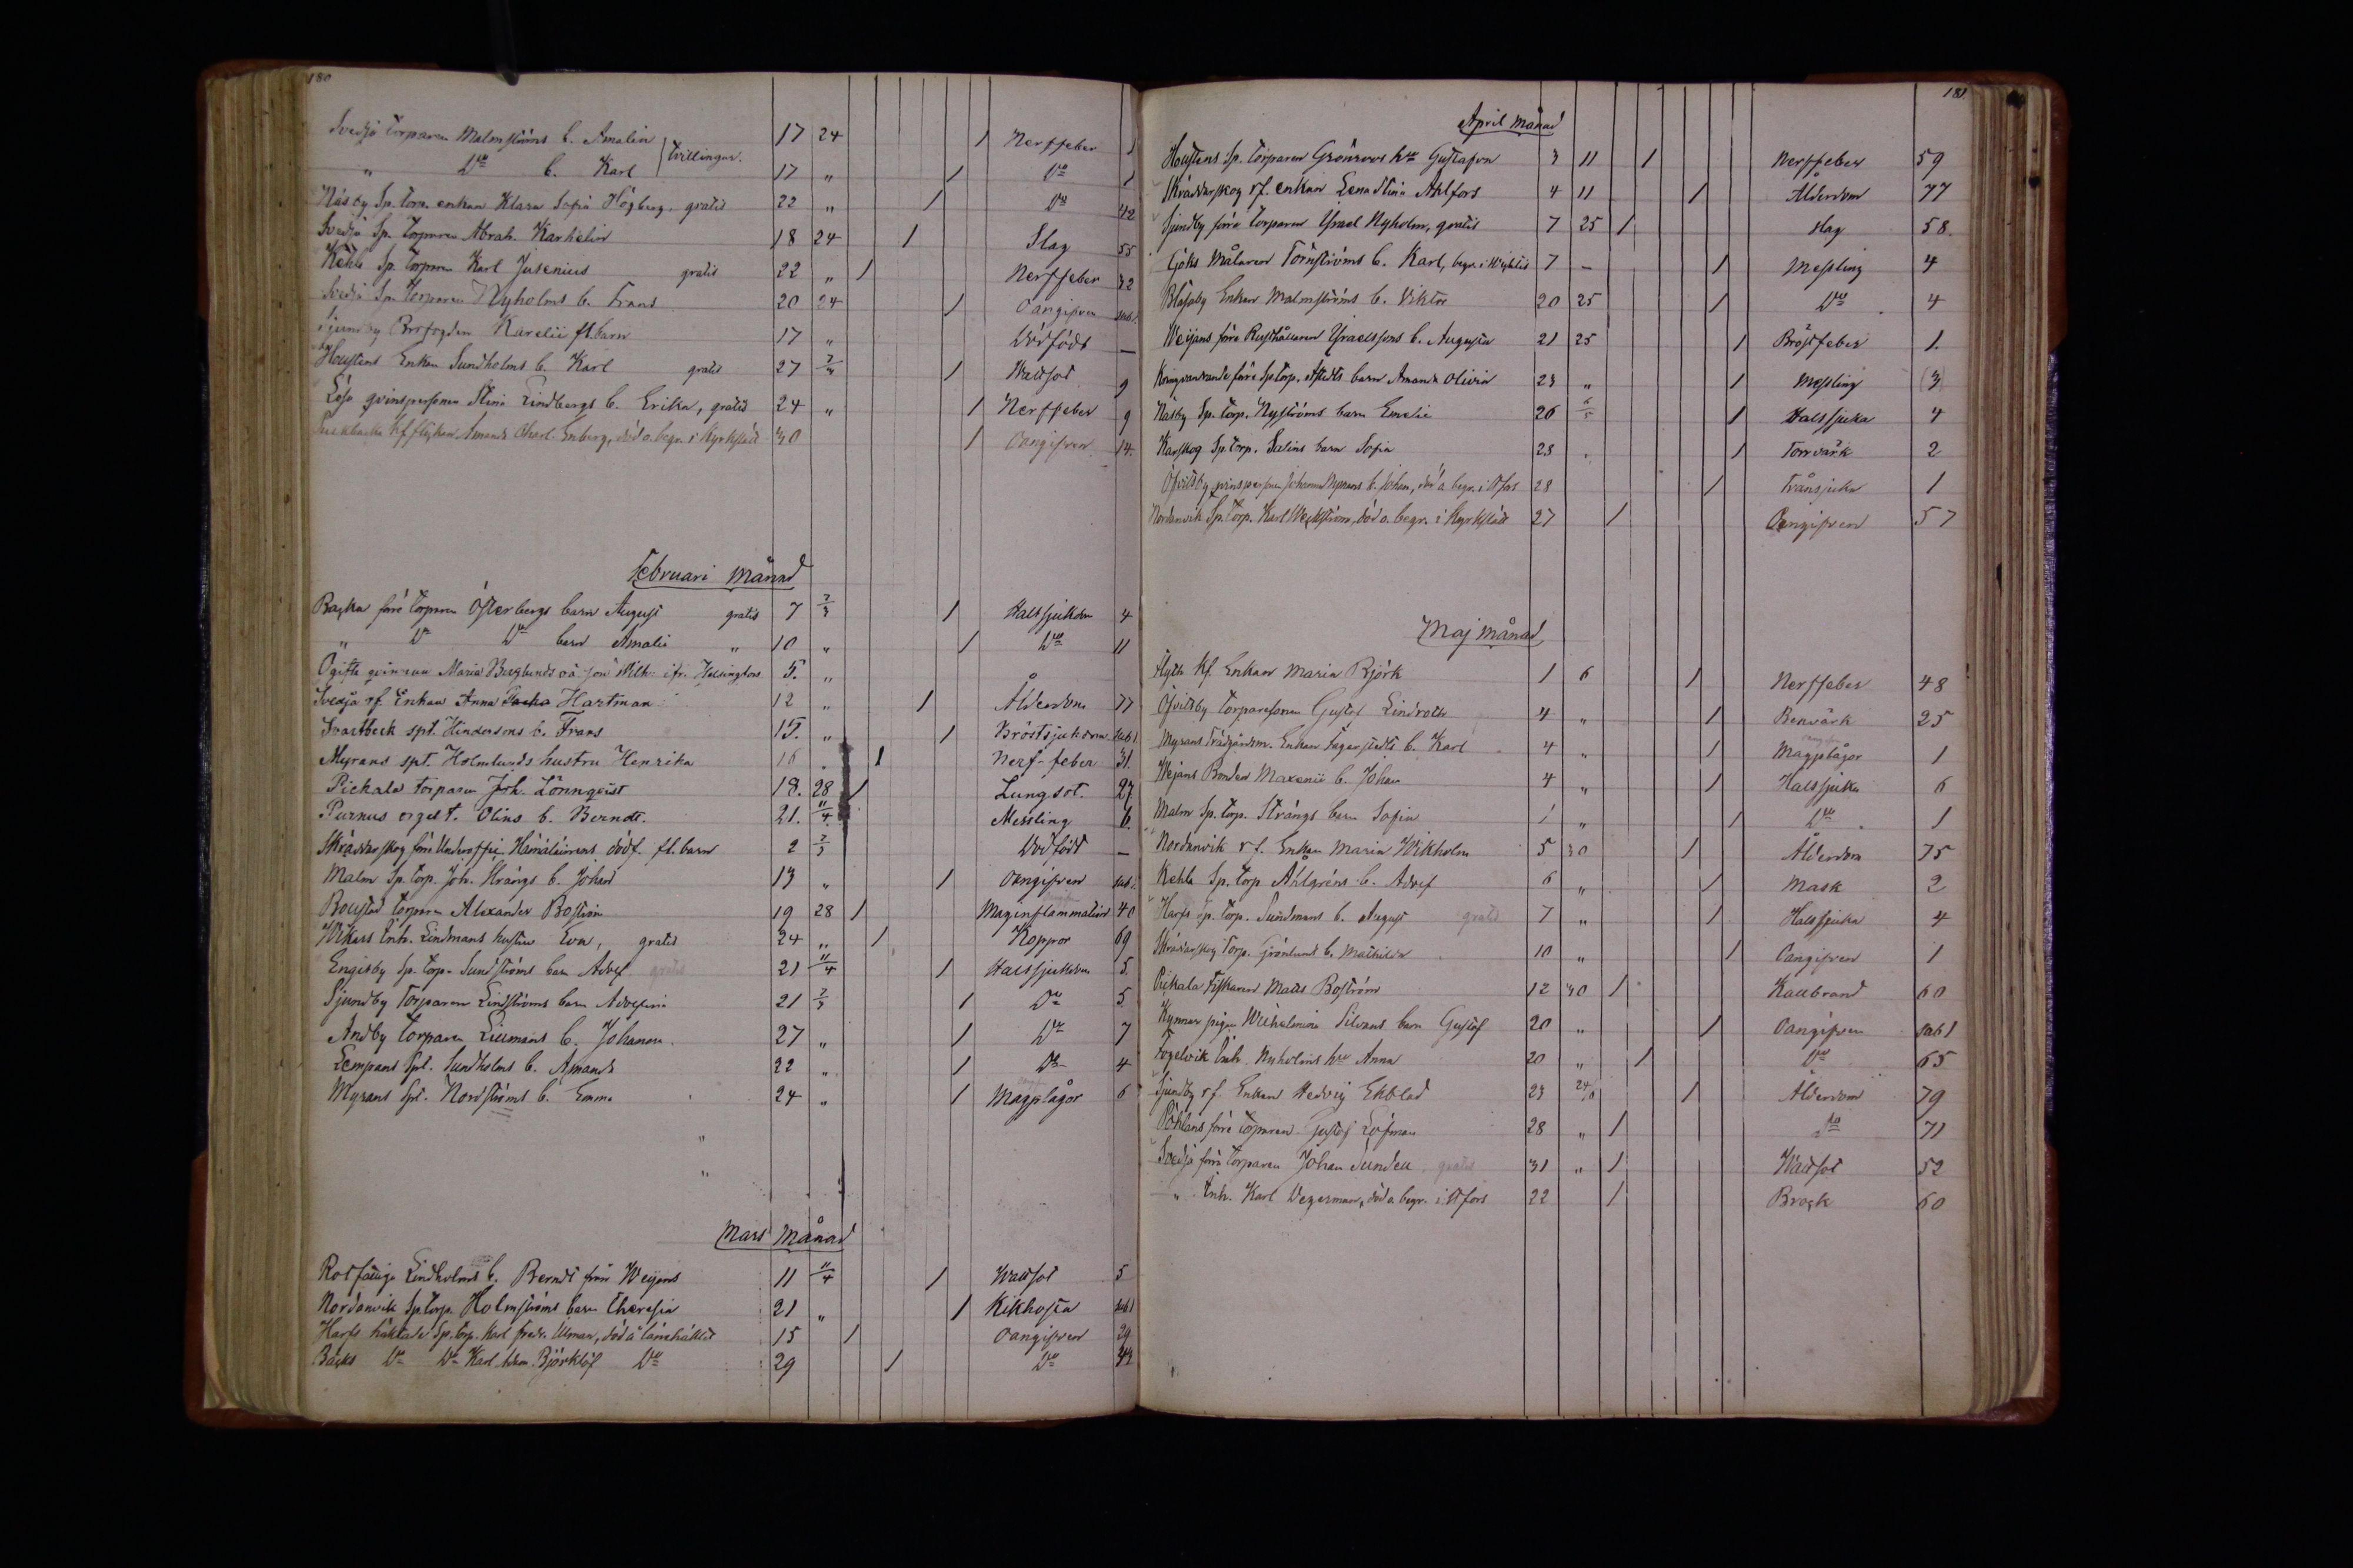 180
Svedja Torparen Malmströms b. Amalia 17 24 / Nerffeber 1
" Do b. Karl } tvillingar. 17 " / Do 1
Näsby Sp. torp. enkan Klara Sofia Högberg, gratis 22 " / Do 42
Svedja Sp. Torparen Abrah. Karhelin 18 24 / Slag 55
Kehla Sp. torparen Karl Jusenius gratis 22 " / Nerffeber 32
Svedja Sp. Torparen Nyholms b. Frans 20 24 / Oangifven
Sjundby Brofogden Karelii fl. barn 17 " Dödfödt —
Houstens Enkan Sundholms b. Karl gratis 27 7/3 / Wattsot 9
Lösa qvinspersonen Stina Lindbergs b. Erika, gratis 24 " / Nerffeber 9
flickan Amanda Charl. Enberg, död o. begr. i Kyrkslätt 30 / Oangifven 14.
Februari Månad
Backa förre Torparen Österbergs barn August gratis 7 7/3 / Halssjukdom 4
" Do Do barn Amalia " 10 " / Do 11
Ogifta qvinnan Maria Berglunds oä son Wilh. ifr. Helsingfors 5. "
Svedja rf. Enkan Anna Hartman 12 " / Ålderdom 77
Svartbeck spt. Hindersons b. Frans 15. " / Bröstsjukdom
Myrans spt. Holmlunds hustru Henrika 16 . / Nerf-feber 31.
Pickala torparen Joh. Lönnqvist 18. 28 / Lungsot. 27.
Purnus Olins b. Berndt. 21. 11/4 Messling 6.
Skräddarskog förre Underoffic. dödf. fl. barn 2 7/3 Dödfödt —
Malm Sp. torp. Joh. Strångs b. Johan 13 " / Oangifven
Boustad torparen Alexander Boström 19 28 / Maginflammation 40
Wikars Inh. Lindmans hustru Eva, gratis 24 " / Koppor 69
Engisby Sp. torp. Sundströms barn Adolf gratis 21 11/4 / Halssjukdom 5.
Sjundby Torparen Lindströms barn Adolfina 21 7/3 / Do 5
Andby torparen Lillmans b. Johanna. 27 " / Do 7
Lempans Spt. Sundholms b. Amanda 22 " / Do 4
Myrans Spt. Nordströms b. Emma 24 " / Magplågor 6
Mars Månad
Rotfattige Lindholms b. Berndt från Weijans 11 11/4 / Wattsot 5
Nordanvik Sp. torp. Holmströms barn Theresia 21 " / Kikhosta
Harfs häktade Sp. torp. Karl Fredr. Ulman, död å länehäktet 15 / Oangifven 29
Bäcks Do Do Karl Björklöf Do 29 / Do
181
April Månad
Houstens Sp. Torparen Grönroos hru Gustafva 3 11 / Nerffeber 59
Skräddarskog rf. enkan Lena Stina Ahlfors 4 11 / Ålderdom 77
Sjundby förre torparen Israel Nyholm, gratis 7 25 / Slag 58.
Göks Målaren Törnströms b. Karl, begr. i Wichtis 7 - / Messling 4
Blåsaby Enkan Malmströms b. Viktor 20 25 / Do 4
Weijans förre Rusthållaren Israelssons b. Augusta 21 25 / Bröstfeber 1.
Kringvandrande förre Sp. torp. barn Amanda Olivia 23 " / Messling 3
Näsby Sp. torp. Nyströms barn Emelie 26 6/5 / Halssjuka 4
Karskog Sp. torp. Salins barn Sofia 23 " / Torrvärk 2
Öfvitsby qvinspersonen Johanna b. Johan, död o. begr. i Hfors 28 / Trånsjuka 1
Nordanvik Sp. torp. Karl Weckström, död o. begr. i Kyrkslätt 27 / Oangifven 57
Maj Månad
Flyth Kf. Enkan Maria Björk 1 6 / Nerffeber 48
Öfvitsby torparesonen Gustaf Lindroth 4 " / Benvärk 25
Myrans Trädgårdsm. Enkan Fagerstedts b. Karl 4 " / Magplågor 1
Wejans Bonden Maxenii b. Johan 4 " / Halssjuka 6
Malm Sp. torp. Strångs barn Sofia 1 " / Do 1
Nordanvik rf. Enkan Maria Wikholm 5 30 / Ålderdom 75
Kehla Sp. torp Åhlgréns b. Adolf 6 " / Mask 2
Harfs Sp. torp. Sundmans b. August gratis 7 " / Halssjuka 4
Skräddarskog Torp. Grönlunds b. Mathilda 10 " / Oangifven 1
Pickala Fiskaren Matts Boström 12 30 / Kallbrand 60
Kynnar pigan Wilhelmina Silvans barn Gustaf 20 " / Oangifven
Fogelvik Inh. Nyholms hru Anna 20 " / Do 65
Sjundby rf. Enkan Hedvig Ekblad 23 24/6 / Ålderdom 79
förre Torparen Gustaf Löfman 28 " / Do 71
Svedja förre torparen Johan Sundell gratis 31 " / Wattsot 52
" Inh. Karl Wegerman, död o. begr. i Hfors 22 / Bråck 60